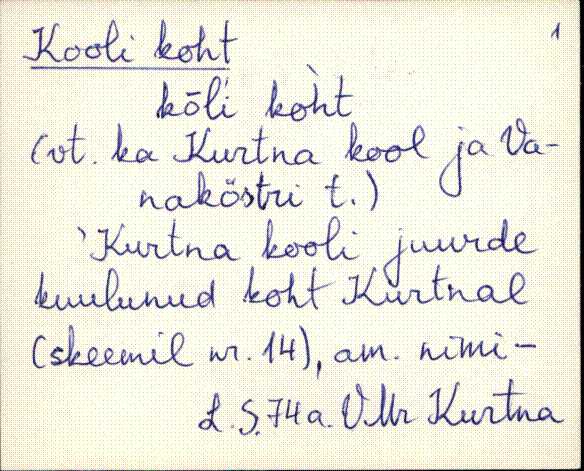 1
Kooli koht
kōli kòht
(vt. ka Kurtna kool ja Va-
naköstri t.)
`Kurtna kooli juurde
kuulunud koht Kurtnal
(skeemil nr. 14), am. nimi-
L. S. 74 a. VMr Kurtna